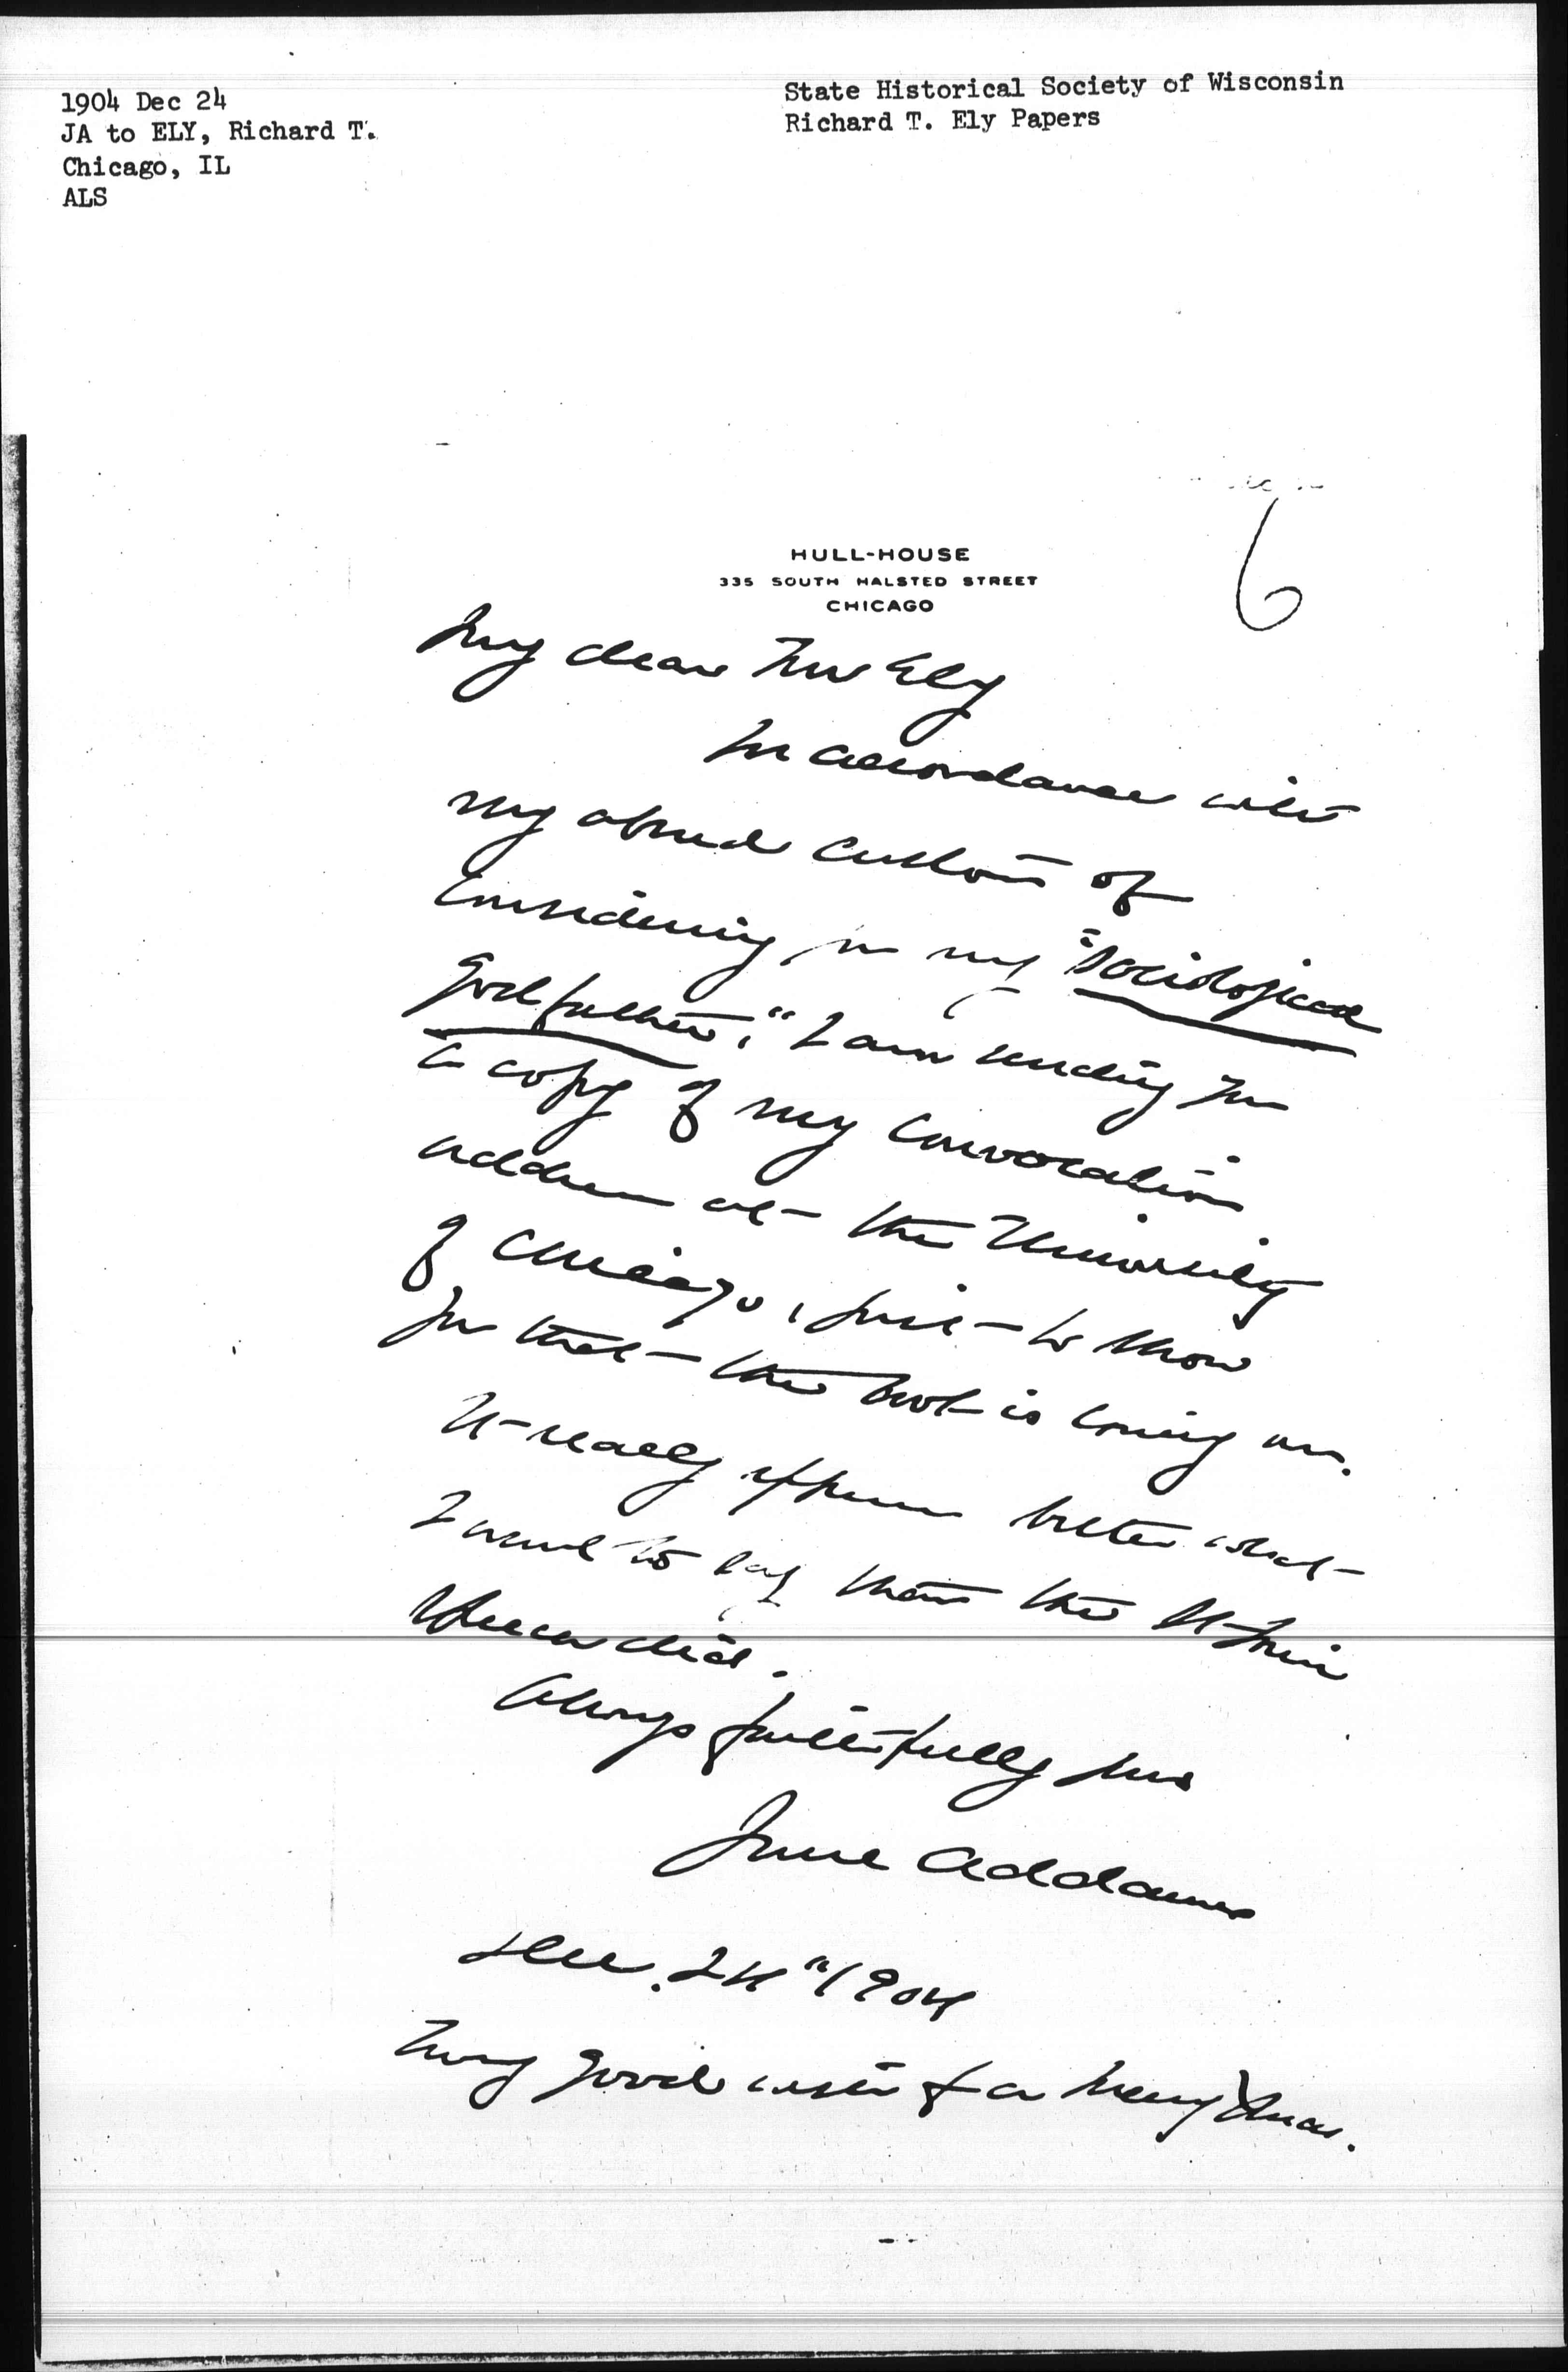 1904 Dec 24
JA to ELY, Richard T.
Chicago, IL
ALS
State Historical Society of Wisconsin
Richard T. Ely Papers
6
HULL-HOUSE
335 SOUTH HALSTED STREET
CHICAGO
My dear Mr Ely
In accordance with
my absurd custom of
considering you my "Sociological
Godfather," I am sending you
a copy of my convocation
address at the University
of Chicago, just to show
you that the book is coming on.
It really expresses better what
I want to say than the
did.
Always faithfully yours
Jane Addams
Dec. 24" 1904
Many good wishes for a merry Xmas.